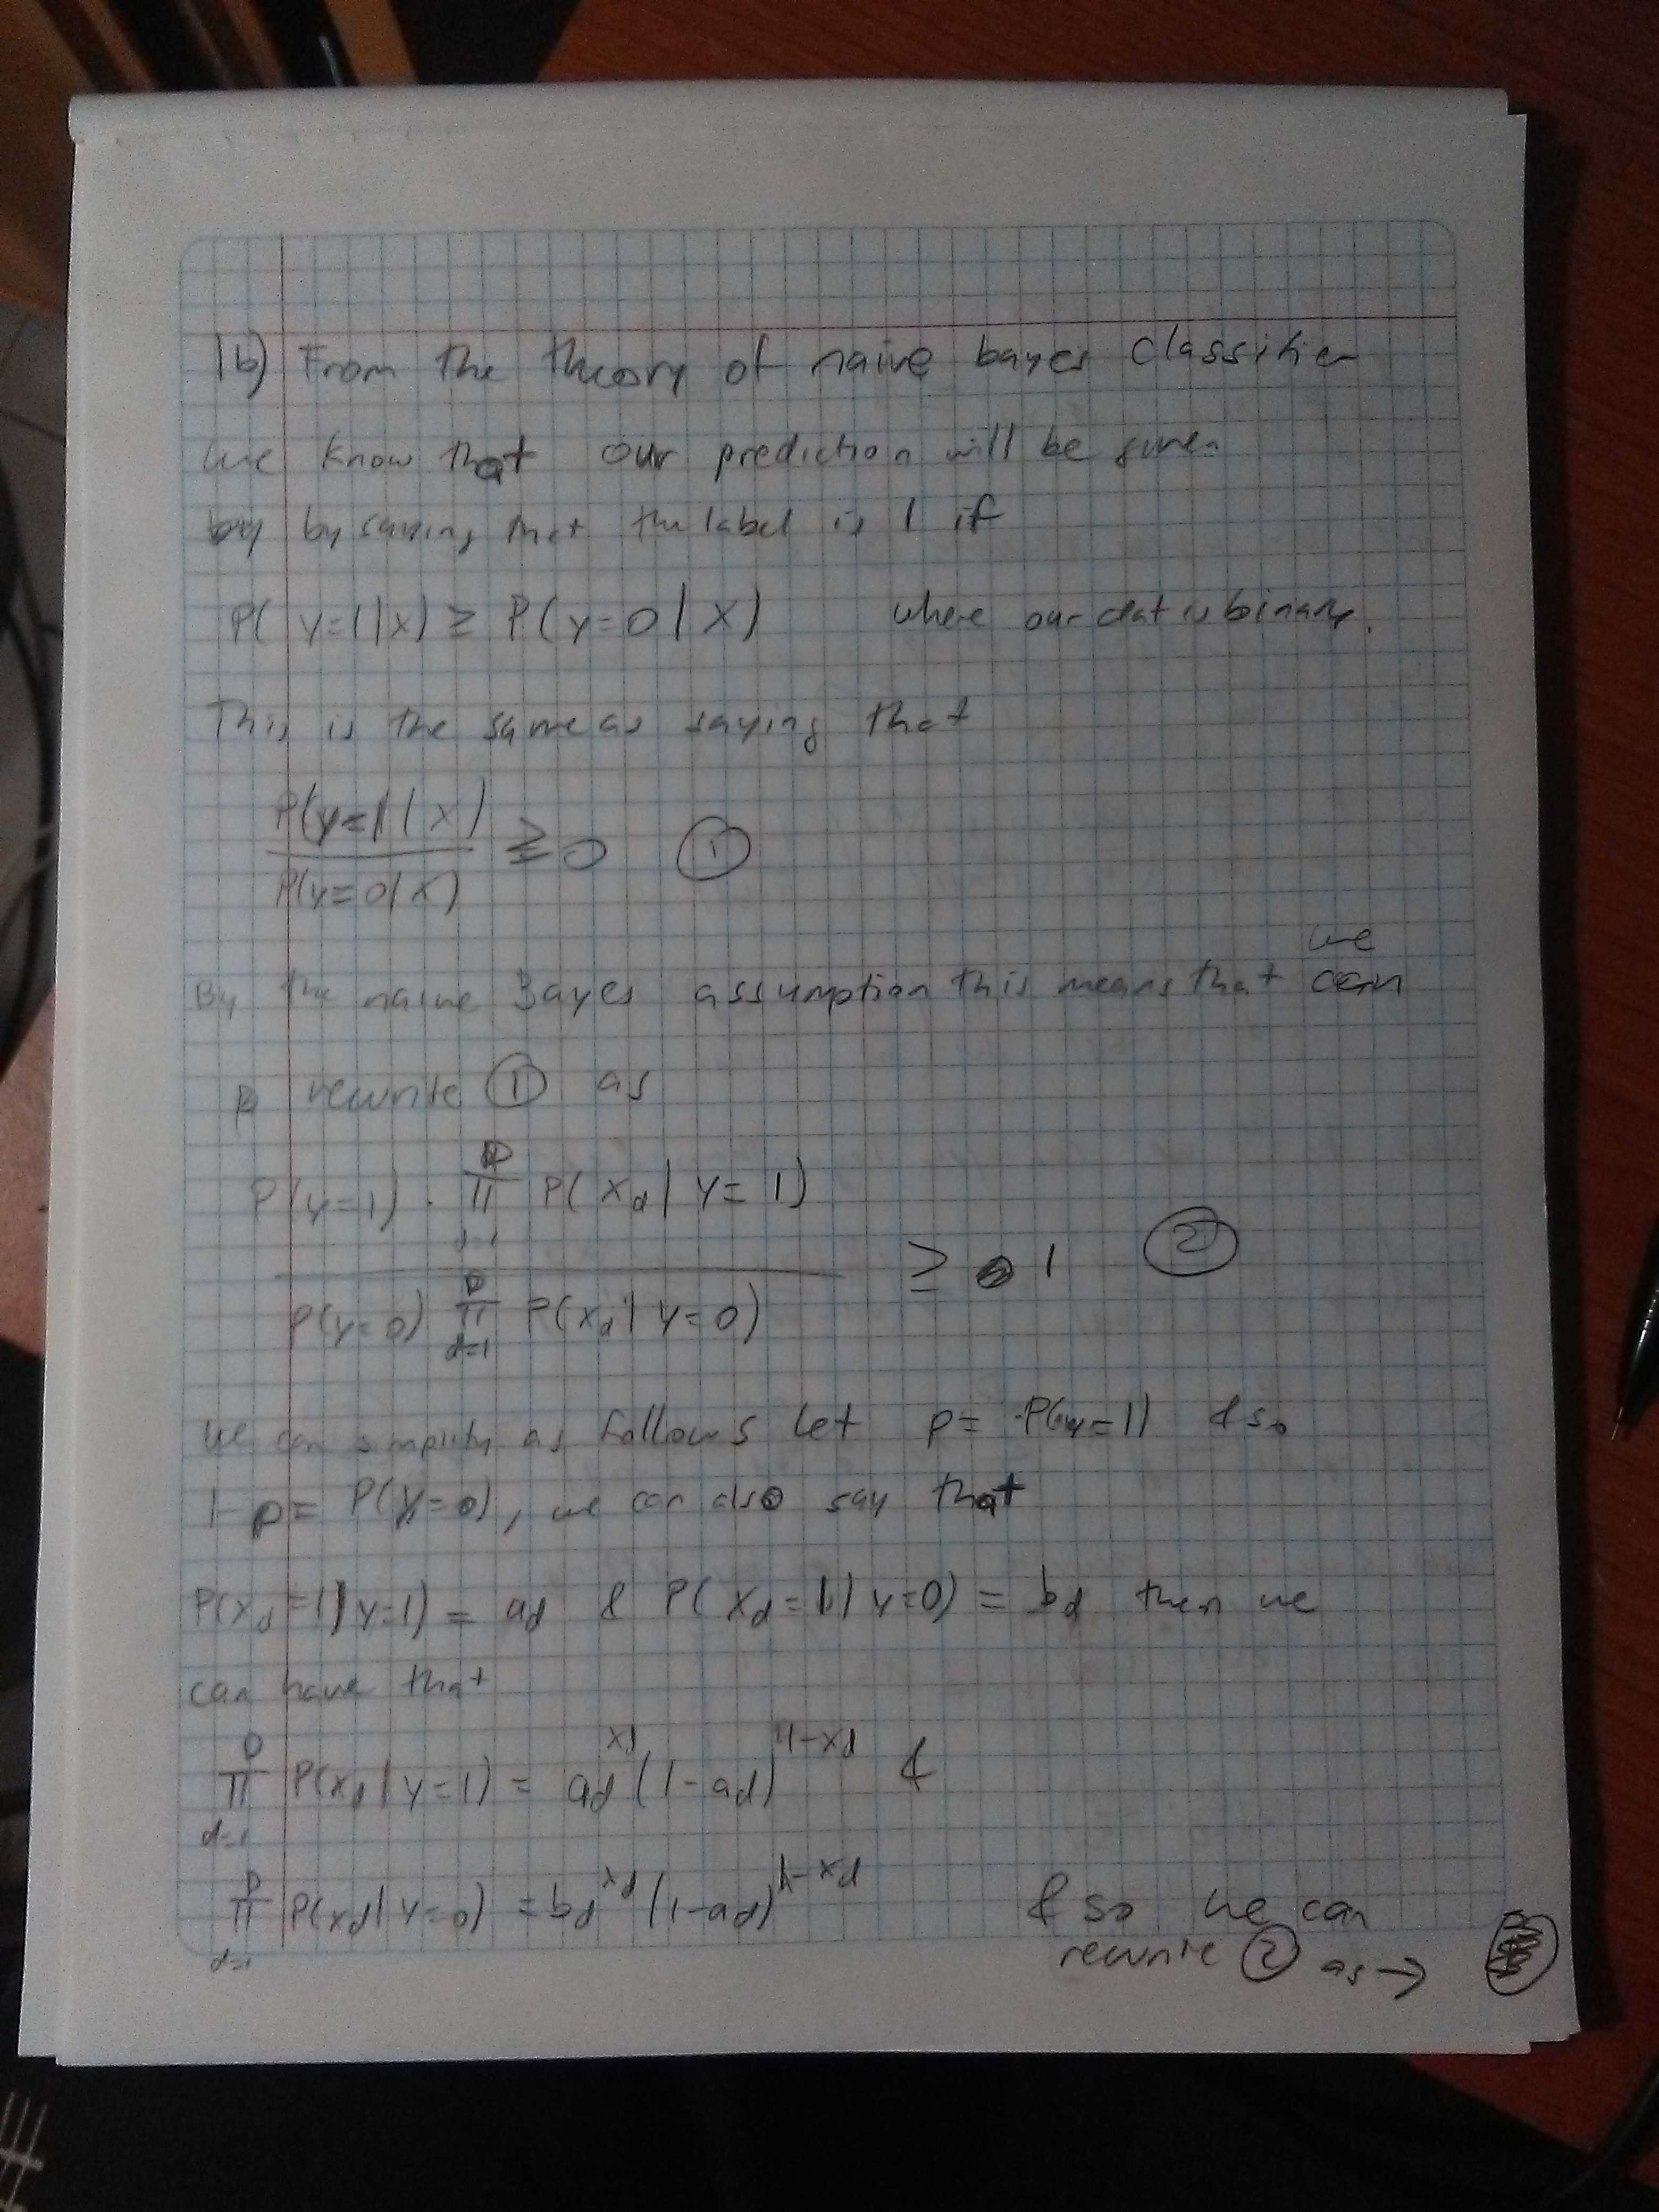 1b) From the theory of naive bayes classifier
we know that our prediction will be given
by by saying that the label is 1 if
P( y=1 | x) ≥ P(y=0 | X) where our dat is binary.
This is the same as saying that
P(y=1 | X)
≥ 0 ①
P(y=0 | X)
we
By the naive Bayes assumption this means that can
rewrite ① as
D
P(y=1) · π P( x_d | y= 1)
d=1
≥ 1 ②
D
P(y=0) π P(x_d | y=0)
d=1
We can simplify as follows let p= P(y=1) & so
1-p= P(y=0), we can also say that
P(x_d=1 | y=1) = a_d & P( x_d=1 | y=0) = b_d then we
can have that
D
π P(x_d | y=1) = a_d^{x_d} (1-a_d)^{1-x_d} &
d=1
D
π P(x_d | y=0) = b_d^{x_d} (1-a_d)^{1-x_d} & so we can
d=1
rewrite ② as →